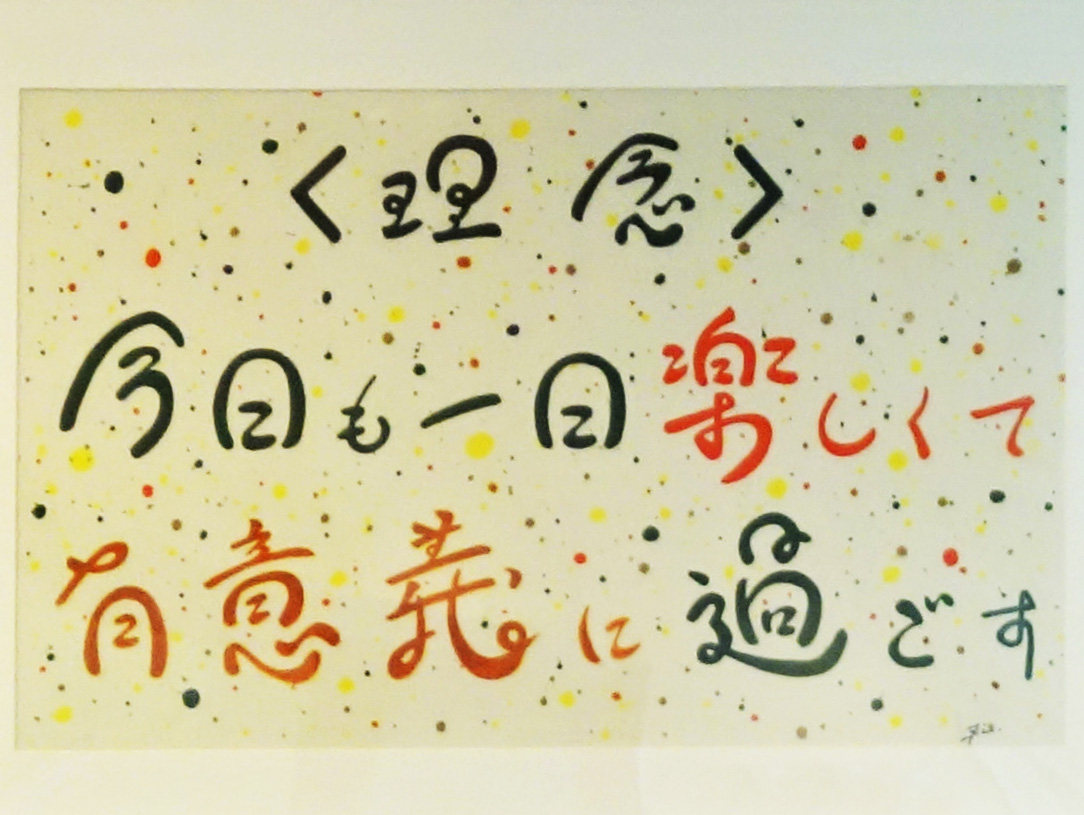 〈理念〉
今日も一日楽しくて
有意義に過ごす